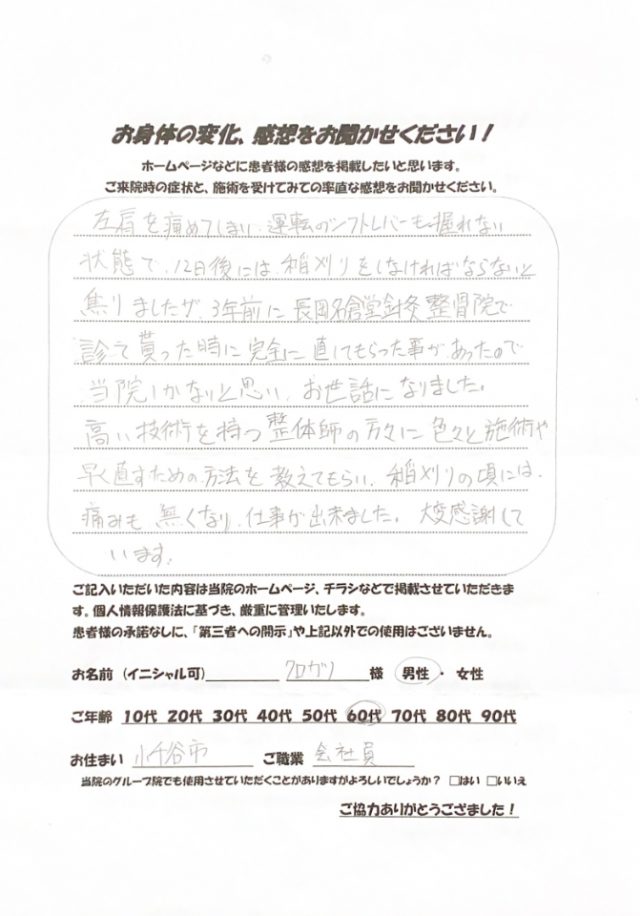 お身体の変化、感想をお聞かせください！
ホームページなどに患者様の感想を掲載したいと思います。
ご来院時の症状と、施術を受けてみての率直な感想をお聞かせください。
左肩を痛めてしまい、運転のシフトレバーも握れない
状態で、12日後には、稲刈りをしなければならないと
焦りましたが、3年前に長岡名倉堂針灸整骨院で
診て貰った時に完全に直してもらった事があったので
当院しかないと思い、お世話になりました。
高い技術を持つ整体師の方々に色々と施術や
早く直すための方法を教えてもらい、稲刈りの頃には、
痛みも無くなり、仕事が出来ました。大変感謝して
います。
ご記入いただいた内容は当院のホームページ、チラシなどで掲載させていただきま
す。個人情報保護法に基づき、厳重に管理いたします。
患者様の承諾なしに、「第三者への開示」や上記以外での使用はございません。
お名前（イニシャル可） クロガリ 様 男性・女性
ご年齢 10代 20代 30代 40代 50代 60代 70代 80代 90代
お住まい 小千谷市 ご職業 会社員
当院のグループ院でも使用させていただくことがありますがよろしいでしょうか？ □はい □いいえ
ご協力ありがとうござました！